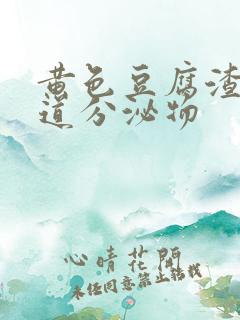 黄色豆腐渣
道分泌物
心晴花開
未经同意禁止转载